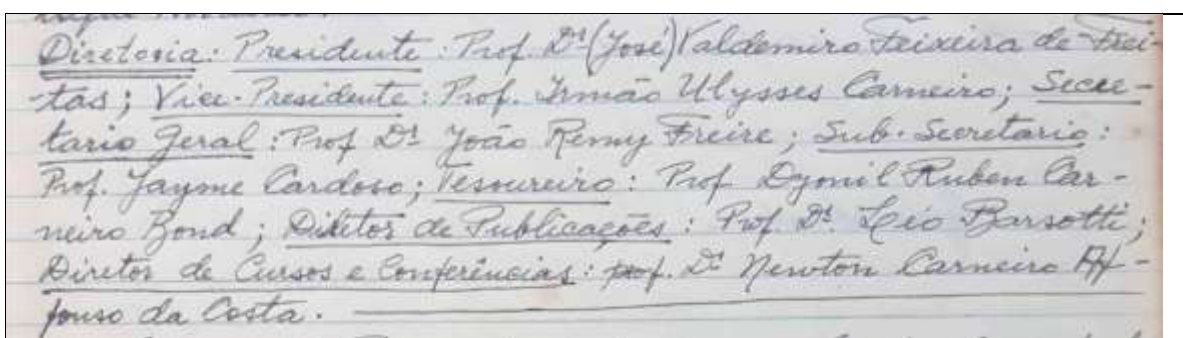 Diretoria: Presidente: Prof. Dr (José) Valdemiro Teixeira de Frei-
-tas; Vice-Presidente: Prof. Irmão Ulysses Carneiro; Secre-
tario Geral: Prof Dr João Remy Freire; Sub-Secretario:
Prof. Jayme Cardoso; Tesoureiro: Prof Dyonil Ruben Car-
neiro Bond; Diretor de Publicações: Prof. Dr. Léo Barsotti;
Diretor de Cursos e Conferências: prof. Dr Newton Carneiro Af-
fonso da Costa.